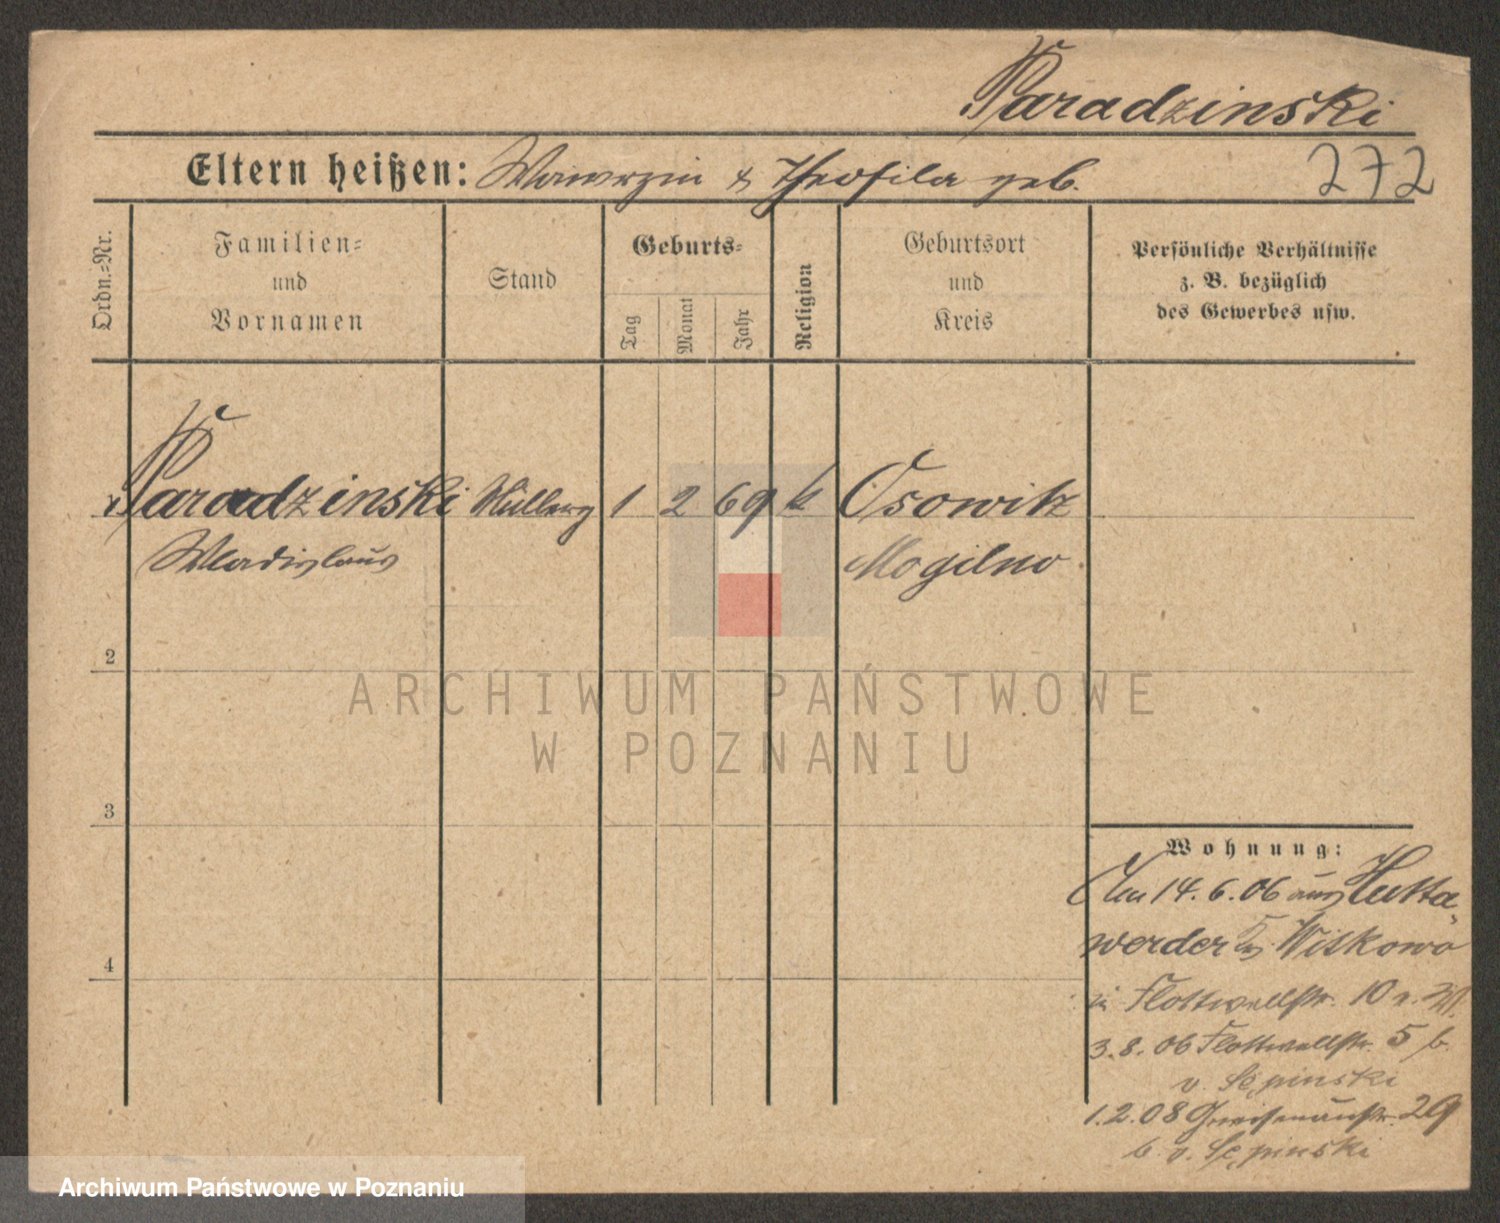 Paradzinski
Eltern heißen: Wawrzin & Theofila geb.
272
Ordn.=Nr.
Familien=
und
Vornamen
Stand
Geburts=
Tag
Monat
Jahr
Religion
Geburtsort
und
Kreis
Persönliche Verhältnisse
z. B. bezüglich
des Gewerbes usw.
Paradzinski 1 2 69 k Osowitz
Wladislaus Mogilno
2
ARCHIWUM PAŃSTWOWE
W POZNANIU
3
Wohnung:
Am 14.6.06 aus Hutta-
werder Krs. Witkowo
in Flottwellstr. 10 v.
4
3.8.06 Flottwellstr. 5 b.
v. Sępinski
1.2.08 Gneisenaustr. 29
b. v. Sępinski
Archiwum Państwowe w Poznaniu